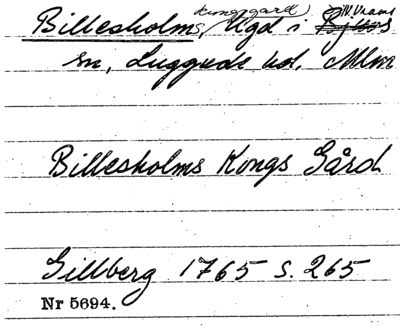 Billesholms kungsgård, lgd i N. Vrams
sn, Luggude hd. Mlm
Billesholms Kongs Gård
Gillberg 1765 s. 265
Nr 5694.